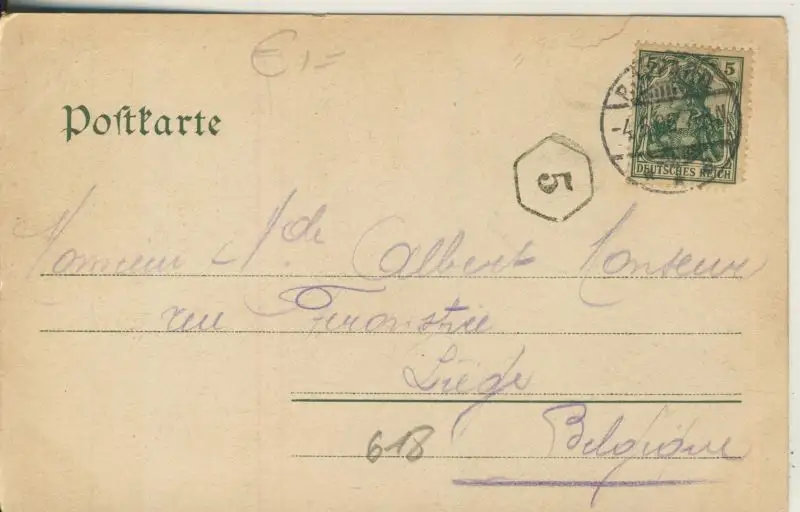 € 1=
Poſtkarte
5 5
DEUTSCHES REICH
5
Monsieur & Mde Albert Monseur
rue
Liége
618
Belgique